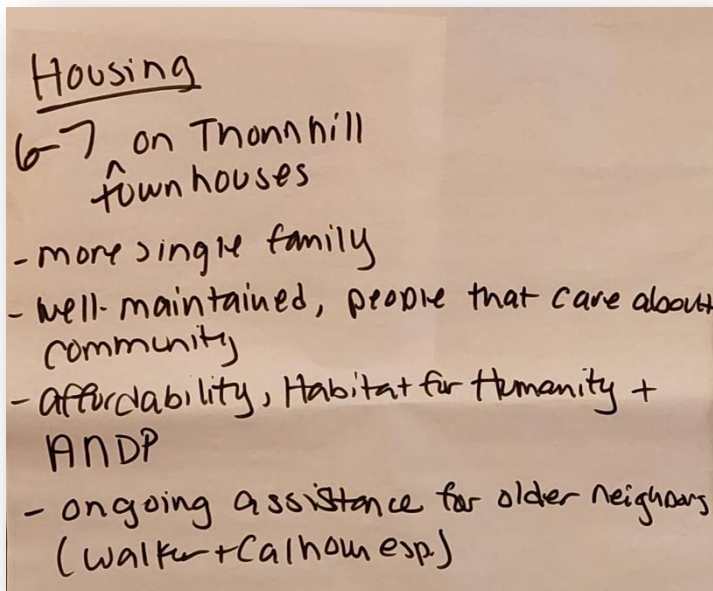 Housing
6-7 on Thornhill
^townhouses
- more single family
- well-maintained, people that care about
community
- affordability, Habitat for Humanity +
ANDP
- ongoing assistance for older neighbors
(Walker + Calhoun esp.)